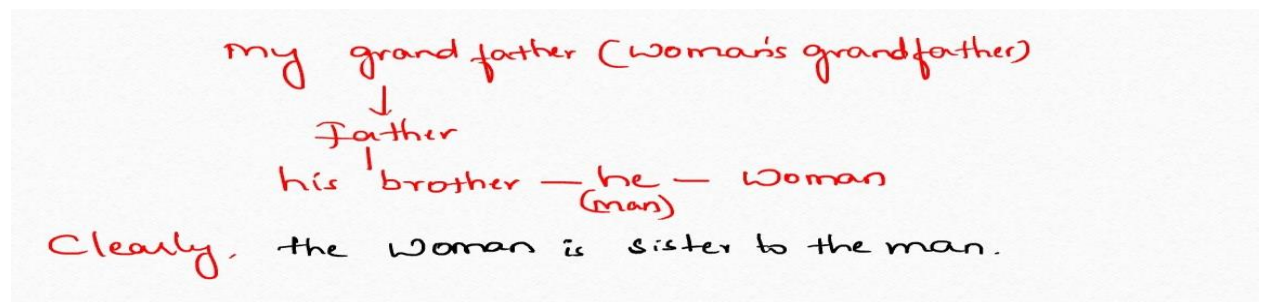 my grand father (woman's grandfather)
↓
Father
his brother — he — woman
(man)
Clearly, the woman is sister to the man.